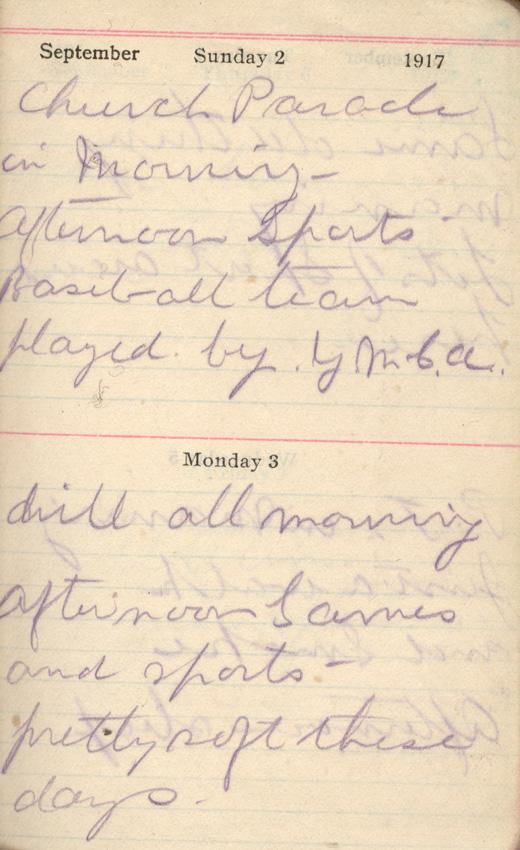 September Sunday 2 1917
Church Parade
in Morning -
afternoon Sports
Baseball team
played by Y.M.C.A.
Monday 3
drill all morning
afternoon Games
and sports -
pretty soft these
days.